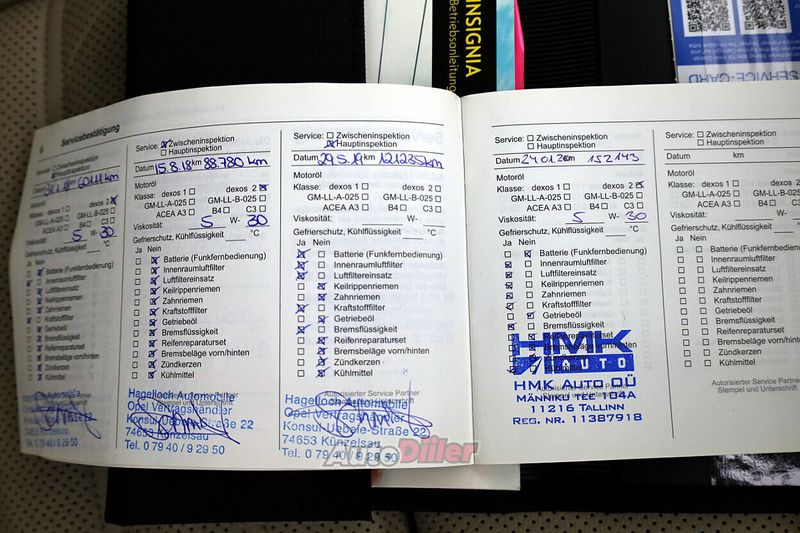 INSIGNIA
Betriebsanleitung
SERVICE-CARD
Servicebestätigung
Service: Zwischeninspektion
Hauptinspektion
Datum km
Viskosität: 5 W- 30
Gefrierschutz, Kühlflüssigkeit
Ja Nein
Batterie (Funkfernbedienung)
Innenraumluftfilter
Luftfiltereinsatz
Keilrippenriemen
Zahnriemen
Kraftstofffilter
Getriebeöl
Bremsflüssigkeit
Reifenreparaturset
Bremsbeläge vorn/hinten
Zündkerzen
Kühlmittel
Service: Zwischeninspektion
Hauptinspektion
Datum 15.8.18 km 88.780 km
Motoröl
Klasse: dexos 1 dexos 2
GM-LL-A-025 GM-LL-B-025
ACEA A3 B4 C3
Viskosität: 5 W- 30
Gefrierschutz, Kühlflüssigkeit °C
Ja Nein
Batterie (Funkfernbedienung)
Innenraumluftfilter
Luftfiltereinsatz
Keilrippenriemen
Zahnriemen
Kraftstofffilter
Getriebeöl
Bremsflüssigkeit
Reifenreparaturset
Bremsbeläge vorn/hinten
Zündkerzen
Kühlmittel
Hagelloch Automobile
Opel Vertragshändler
Konsul-Uebele-Straße 22
74653 Künzelsau
Tel. 0 79 40 / 9 29 50
Service: Zwischeninspektion
Hauptinspektion
Datum 29.5.19 km 121235km
Motoröl
Klasse: dexos 1 dexos 2
GM-LL-A-025 GM-LL-B-025
ACEA A3 B4 C3
Viskosität: W-
Gefrierschutz, Kühlflüssigkeit °C
Ja Nein
Batterie (Funkfernbedienung)
Innenraumluftfilter
Luftfiltereinsatz
Keilrippenriemen
Zahnriemen
Kraftstofffilter
Getriebeöl
Bremsflüssigkeit
Reifenreparaturset
Bremsbeläge vorn/hinten
Zündkerzen
Kühlmittel
Autorisierter Service Partner
Hagelloch Automobile
Opel Vertragshändler
Konsul-Uebele-Straße 22
74653 Künzelsau
Tel. 0 79 40 / 9 29 50
Service: Zwischeninspektion
Hauptinspektion
Datum 24.01.20 km 152143
Motoröl
Klasse: dexos 1 dexos 2
GM-LL-A-025 GM-LL-B-025
ACEA A3 B4 C3
Viskosität: 5 W- 30
Gefrierschutz, Kühlflüssigkeit °C
Ja Nein
Batterie (Funkfernbedienung)
Innenraumluftfilter
Luftfiltereinsatz
Keilrippenriemen
Zahnriemen
Kraftstofffilter
Getriebeöl
Bremsflüssigkeit
Reifenreparaturset
Bremsbeläge vorn/hinten
HMK
AUTO
HMK AUTO OÜ
MÄNNIKU TEE 104A
11216 TALLINN
REG. NR. 11387918
Datum km
Autorisierter Service Partner
Stempel und Unterschrift
AutoDiiler